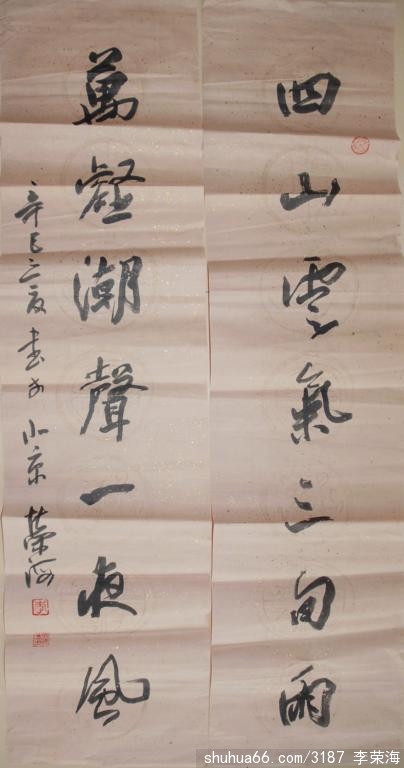 四山雲氣三旬雨
萬壑潮聲一夜風
辛巳之夏書於北京 榮海
shuhua66.com/3187 李荣海